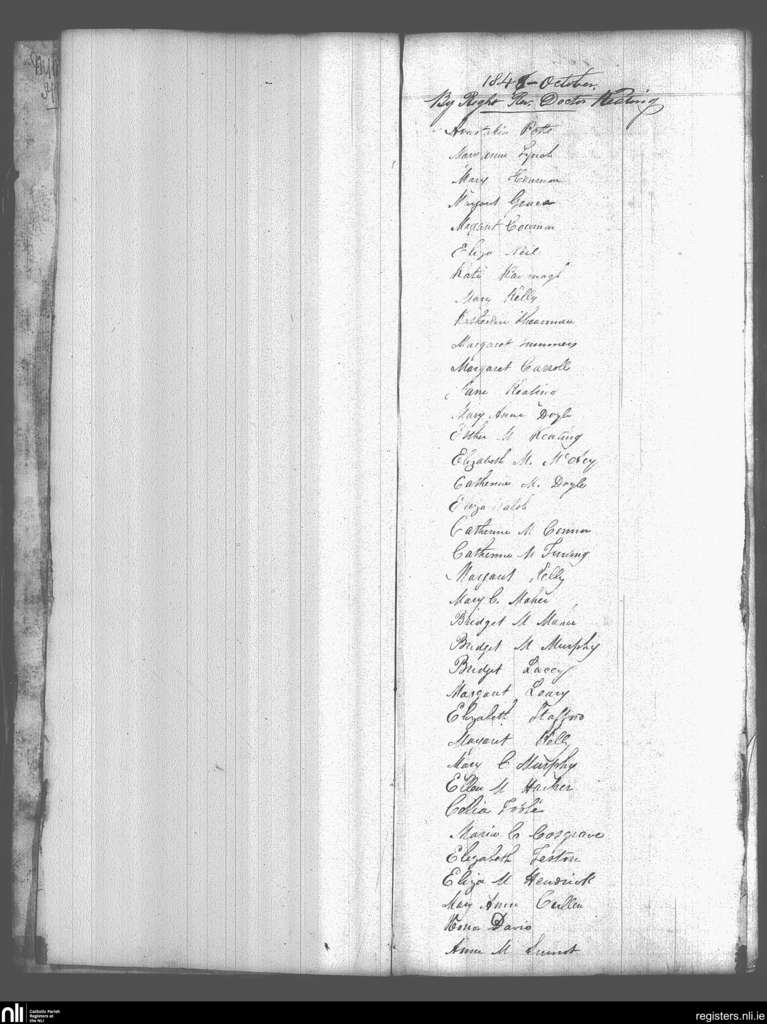 184 - October
By Right Rev. Doctor Keating
Potts
Mary Anne Lynch
Mary
Margaret Grace
Margaret
Eliza Neil
Kate Kavanagh
Mary Kelly
Margaret
Margaret Carroll
Jane Keating
Mary Anne Doyle
Esther M Keating
Elizabeth M.
Catherine M. Doyle
Eliza Walsh
Catherine M Connor
Catherine M
Margaret Kelly
Mary C. Maher
Bridget M
Bridget M Murphy
Bridget Lacey
Margaret Leary
Elizabeth
Margaret Kelly
Mary C Murphy
Ellen M
Celia
Maria C Cosgrave
Elizabeth
Eliza M Hendrick
Mary Anne Cullen
Davis
Anne M
nli
Catholic Parish
Registers at
the NLI
registers.nli.ie